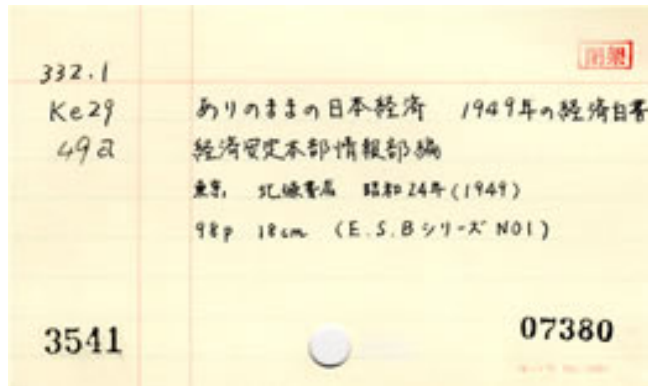 332.1
Ke29 ありのままの日本経済 1949年の経済白書
49a 経済安定本部情報部編
東京, 北條書店 昭和24年(1949)
98p 18cm (E.S.BシリーズNO1)
3541
07380